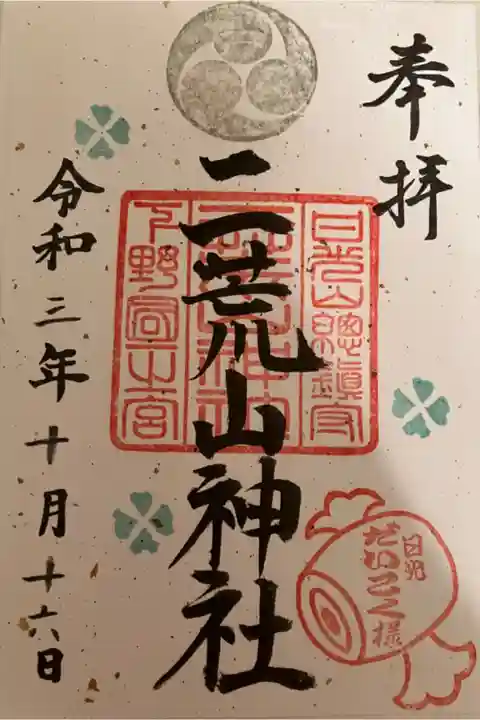 奉拝
日光山總鎮守
二荒山神社
下野國一之宮
二荒山神社
令和三年十月十六日
日光
だいこく様